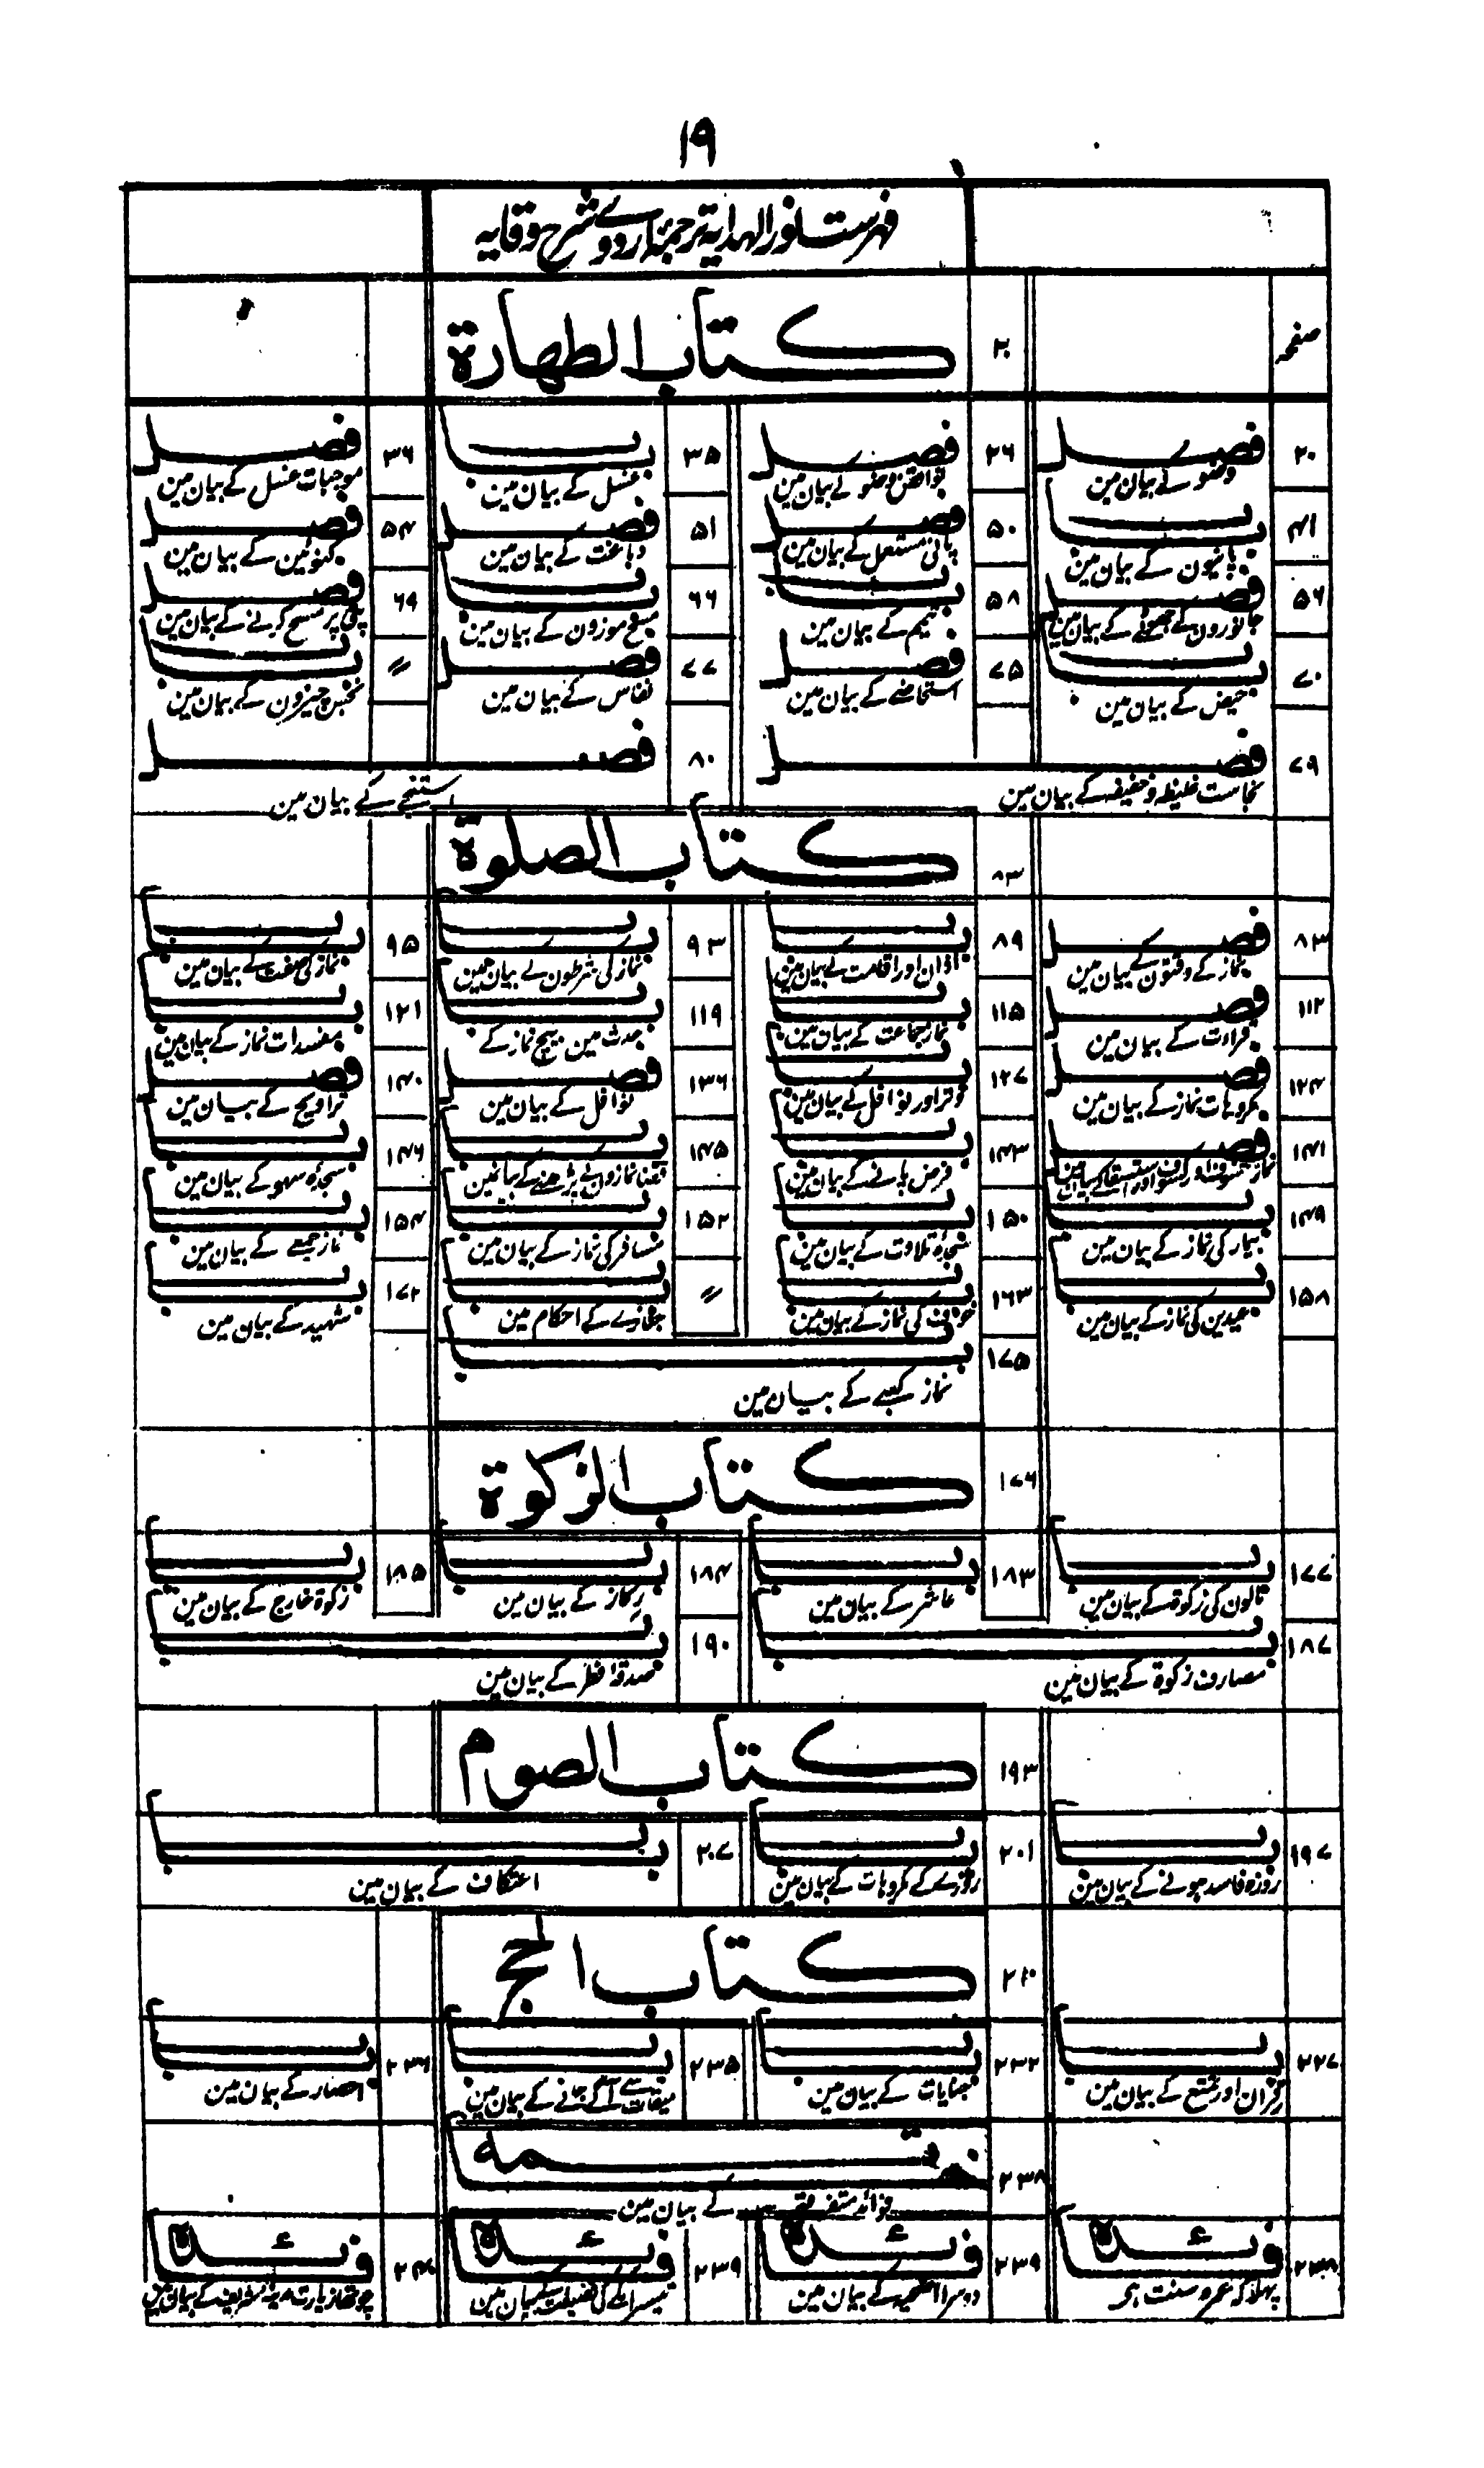 ۱۹
فہرست نور الہدایہ ترجمۂ اردوے شرح وقایہ
صفحہ
۲۰ کتاب الطهارة
۲۰ فصل وضو کے بیان مین
۲۶ فصل نواقض وضو کے بیان مین
۳۵ باب غسل کے بیان مین
۳۶ فصل موجبات غسل کے بیان مین
۴۱ باب پانیون کے بیان مین
۵۰ فصل پانی مستعمل کے بیان مین
۵۱ فصل دباغت کے بیان مین
۵۴ فصل کنوئین کے بیان مین
۵۶ فصل جانورون کے جھوٹے کے بیان مین
۵۸ باب تیمم کے بیان مین
۶۶ باب مسح موزون کے بیان مین
۶۹ فصل پٹی پر مسح کرنے کے بیان مین
۷۰ باب حیض کے بیان مین
۷۵ فصل استحاضے کے بیان مین
۷۷ فصل نفاس کے بیان مین
〃 باب نجس چیزون کے بیان مین
۷۹ فصل نجاست غلیظہ و خفیفہ کے بیان مین
۸۰ فصل استنجے کے بیان مین
۸۳ کتاب الصلوة
۸۳ فصل نماز کے وقتون کے بیان مین
۸۹ باب اذان اور اقامت کے بیان مین
۹۳ باب نماز کی شرطون کے بیان مین
۹۵ باب نماز کی صفت کے بیان مین
۱۱۲ فصل قراءت کے بیان مین
۱۱۵ باب نماز جماعت کے بیان مین
۱۱۹ باب حدث مین بیچ نماز کے
۱۲۱ باب مفسدات نماز کے بیان مین
۱۲۴ فصل مکروہات نماز کے بیان مین
۱۲۷ باب وتر اور نوافل کے بیان مین
۱۳۶ فصل نوافل کے بیان مین
۱۴۰ فصل تراویح کے بیان مین
۱۴۱ فصل نماز کسوف اور خسوف اور استسقا کے بیان مین
۱۴۳ باب فرض پانے کے بیان مین
۱۴۵ باب قضا نمازون کے پڑھنے کے بیانمین
۱۴۶ باب سجدۂ سہو کے بیان مین
۱۴۹ باب بیمار کی نماز کے بیان مین
۱۵۰ باب سجدۂ تلاوت کے بیان مین
۱۵۲ باب مسافر کی نماز کے بیان مین
۱۵۴ باب نماز جمعے کے بیان مین
۱۵۸ باب عیدین کی نماز کے بیان مین
۱۶۳ باب خوف کی نماز کے بیان مین
〃 باب جنازے کے احکام مین
۱۷۲ باب شہید کے بیان مین
۱۷۵ باب نماز کعبے کے بیان مین
۱۷۶ کتاب الزکوة
۱۷۷ باب مالون کی زکوة کے بیان مین
۱۸۳ باب عاشر کے بیان مین
۱۸۴ باب رکاز کے بیان مین
۱۸۵ باب زکوة خارج کے بیان مین
۱۸۷ باب مصارف زکوة کے بیان مین
۱۹۰ باب صدقۂ فطر کے بیان مین
۱۹۳ کتاب الصوم
۱۹۷ باب روزہ فاسد ہونے کے بیان مین
۲۰۱ باب روزے کے مکروہات کے بیان مین
۲۰۷ باب اعتکاف کے بیان مین
۲۱۰ کتاب الحج
۲۲۷ باب قران اور تمتع کے بیان مین
۲۳۲ باب جنایات کے بیان مین
۲۳۵ باب میقات سے آگے جانے کے بیان مین
۲۳۶ باب احصار کے بیان مین
۲۳۸ خاتمہ فوائد متفرقہ کے بیان مین
۲۳۸ فائدہ پہلا کہ عمرہ سنت ہی
۲۳۹ فائدہ دوسرا اضحیہ کے بیان مین
۲۳۹ فائدہ تیسرا کی فضیلت کے بیان مین
۲۴۰ فائدہ چوتھا زیارت مدینہ شریف کے بیان مین